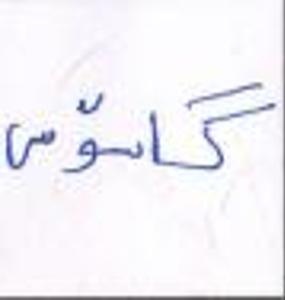 گاسۆس